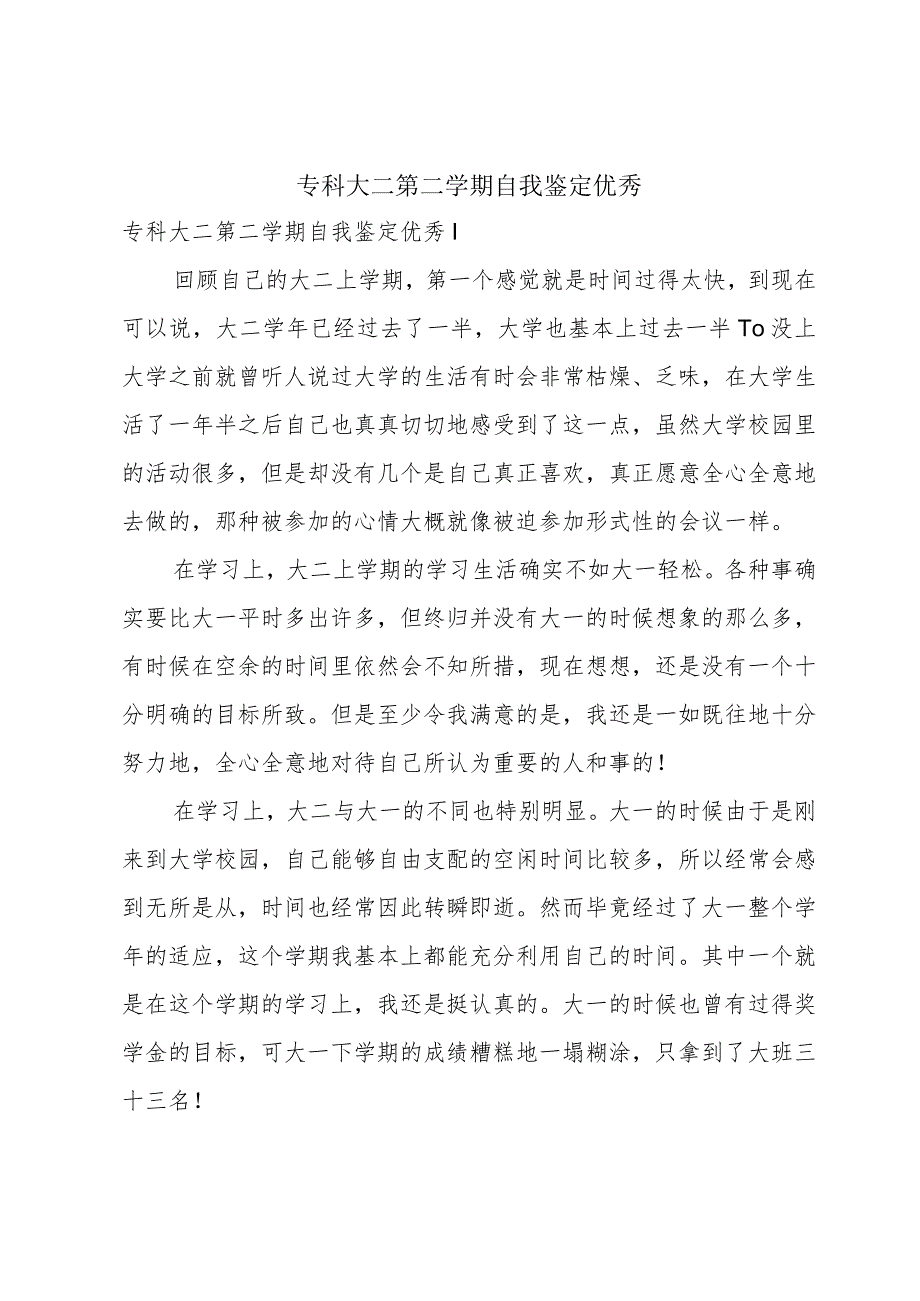 专科大二第二学期自我鉴定优秀
专科大二第二学期自我鉴定优秀I
回顾自己的大二上学期，第一个感觉就是时间过得太快，到现在
可以说，大二学年已经过去了一半，大学也基本上过去一半To没上
大学之前就曾听人说过大学的生活有时会非常枯燥、乏味，在大学生
活了一年半之后自己也真真切切地感受到了这一点，虽然大学校园里
的活动很多，但是却没有几个是自己真正喜欢，真正愿意全心全意地
去做的，那种被参加的心情大概就像被迫参加形式性的会议一样。
在学习上，大二上学期的学习生活确实不如大一轻松。各种事确
实要比大一平时多出许多，但终归并没有大一的时候想象的那么多，
有时候在空余的时间里依然会不知所措，现在想想，还是没有一个十
分明确的目标所致。但是至少令我满意的是，我还是一如既往地十分
努力地，全心全意地对待自己所认为重要的人和事的！
在学习上，大二与大一的不同也特别明显。大一的时候由于是刚
来到大学校园，自己能够自由支配的空闲时间比较多，所以经常会感
到无所是从，时间也经常因此转瞬即逝。然而毕竟经过了大一整个学
年的适应，这个学期我基本上都能充分利用自己的时间。其中一个就
是在这个学期的学习上，我还是挺认真的。大一的时候也曾有过得奖
学金的目标，可大一下学期的成绩糟糕地一塌糊涂，只拿到了大班三
十三名！